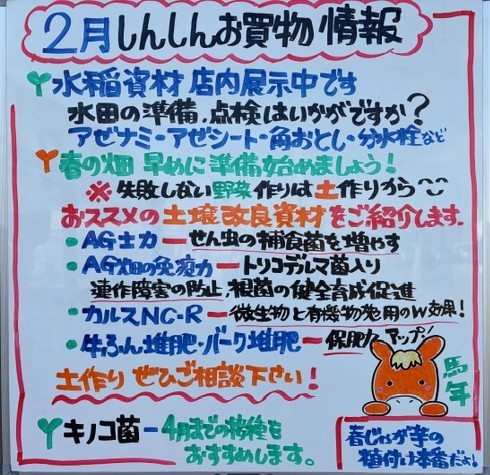 2月しんしんお買物情報
水稲資材 店内展示中です
水田の準備、点検はいかがですか?
アゼナミ・アゼシート・角おとし・分水栓など
春の畑 早めに準備始めましょう!
※失敗しない野菜作りは土作りから
おススメの土壌改良資材をご紹介します。
・AG土力ーせん虫の補食菌を増やす
・AG畑の免疫力ートリコデルマ菌入り
連作障害の防止、根菌の健全育成促進
・カルスNC-Rー微生物と有機物発用のW効果!
・牛ふん堆肥・バーク堆肥ー保肥力アップ!
土作り ぜひご相談下さい!
馬年
キノコ菌ー4月までの接種を
おすすめします。
春じゃが芋の
植付け本番だよ!